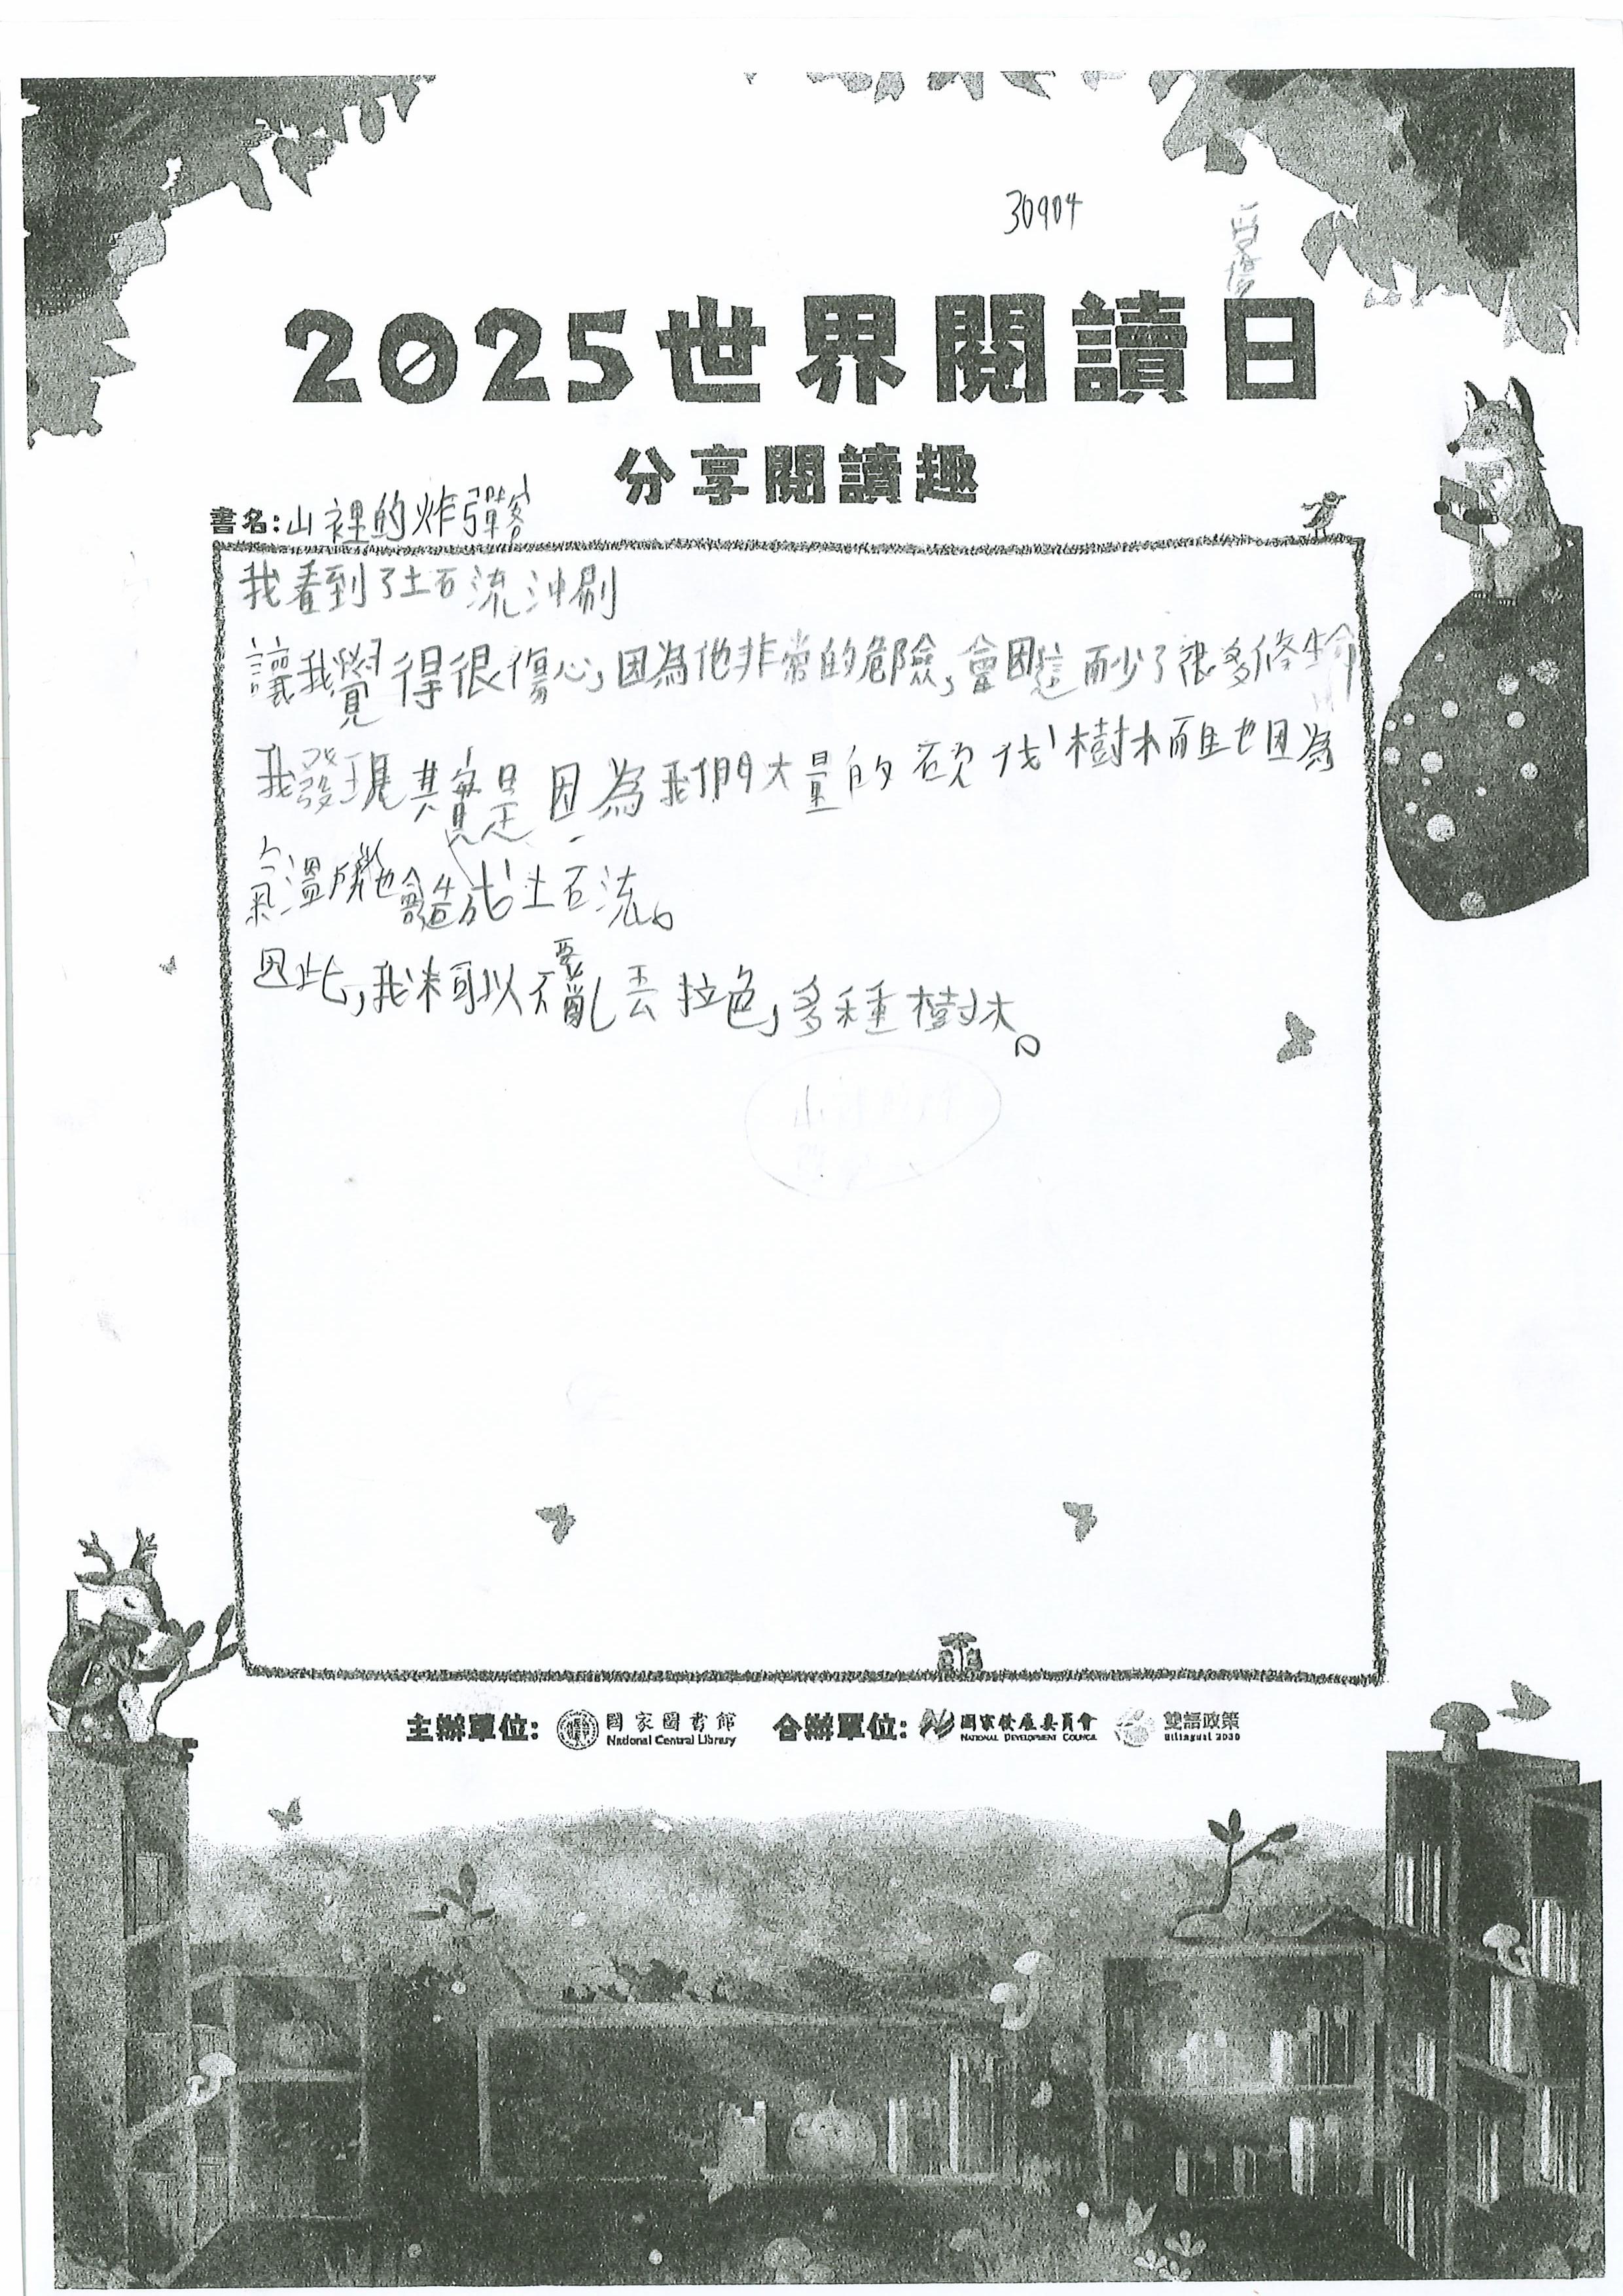 30904
2025世界閱讀日
分享閱讀趣
書名:山裡的炸彈客
我看到了土石流沖刷
讓我覺得很傷心,因為他非常的危險,會因這而少了很多條生命
我發現其實是因為我們大量的砍伐樹木而且也因為
氣溫 也會造成土石流。
因此,我 可以不要亂丟垃色,多種樹木。
主辦單位: 國家圖書館 National Central Library 合辦單位: 國家發展委員會 NATIONAL DEVELOPMENT COUNCIL 雙語政策 Bilingual 2030